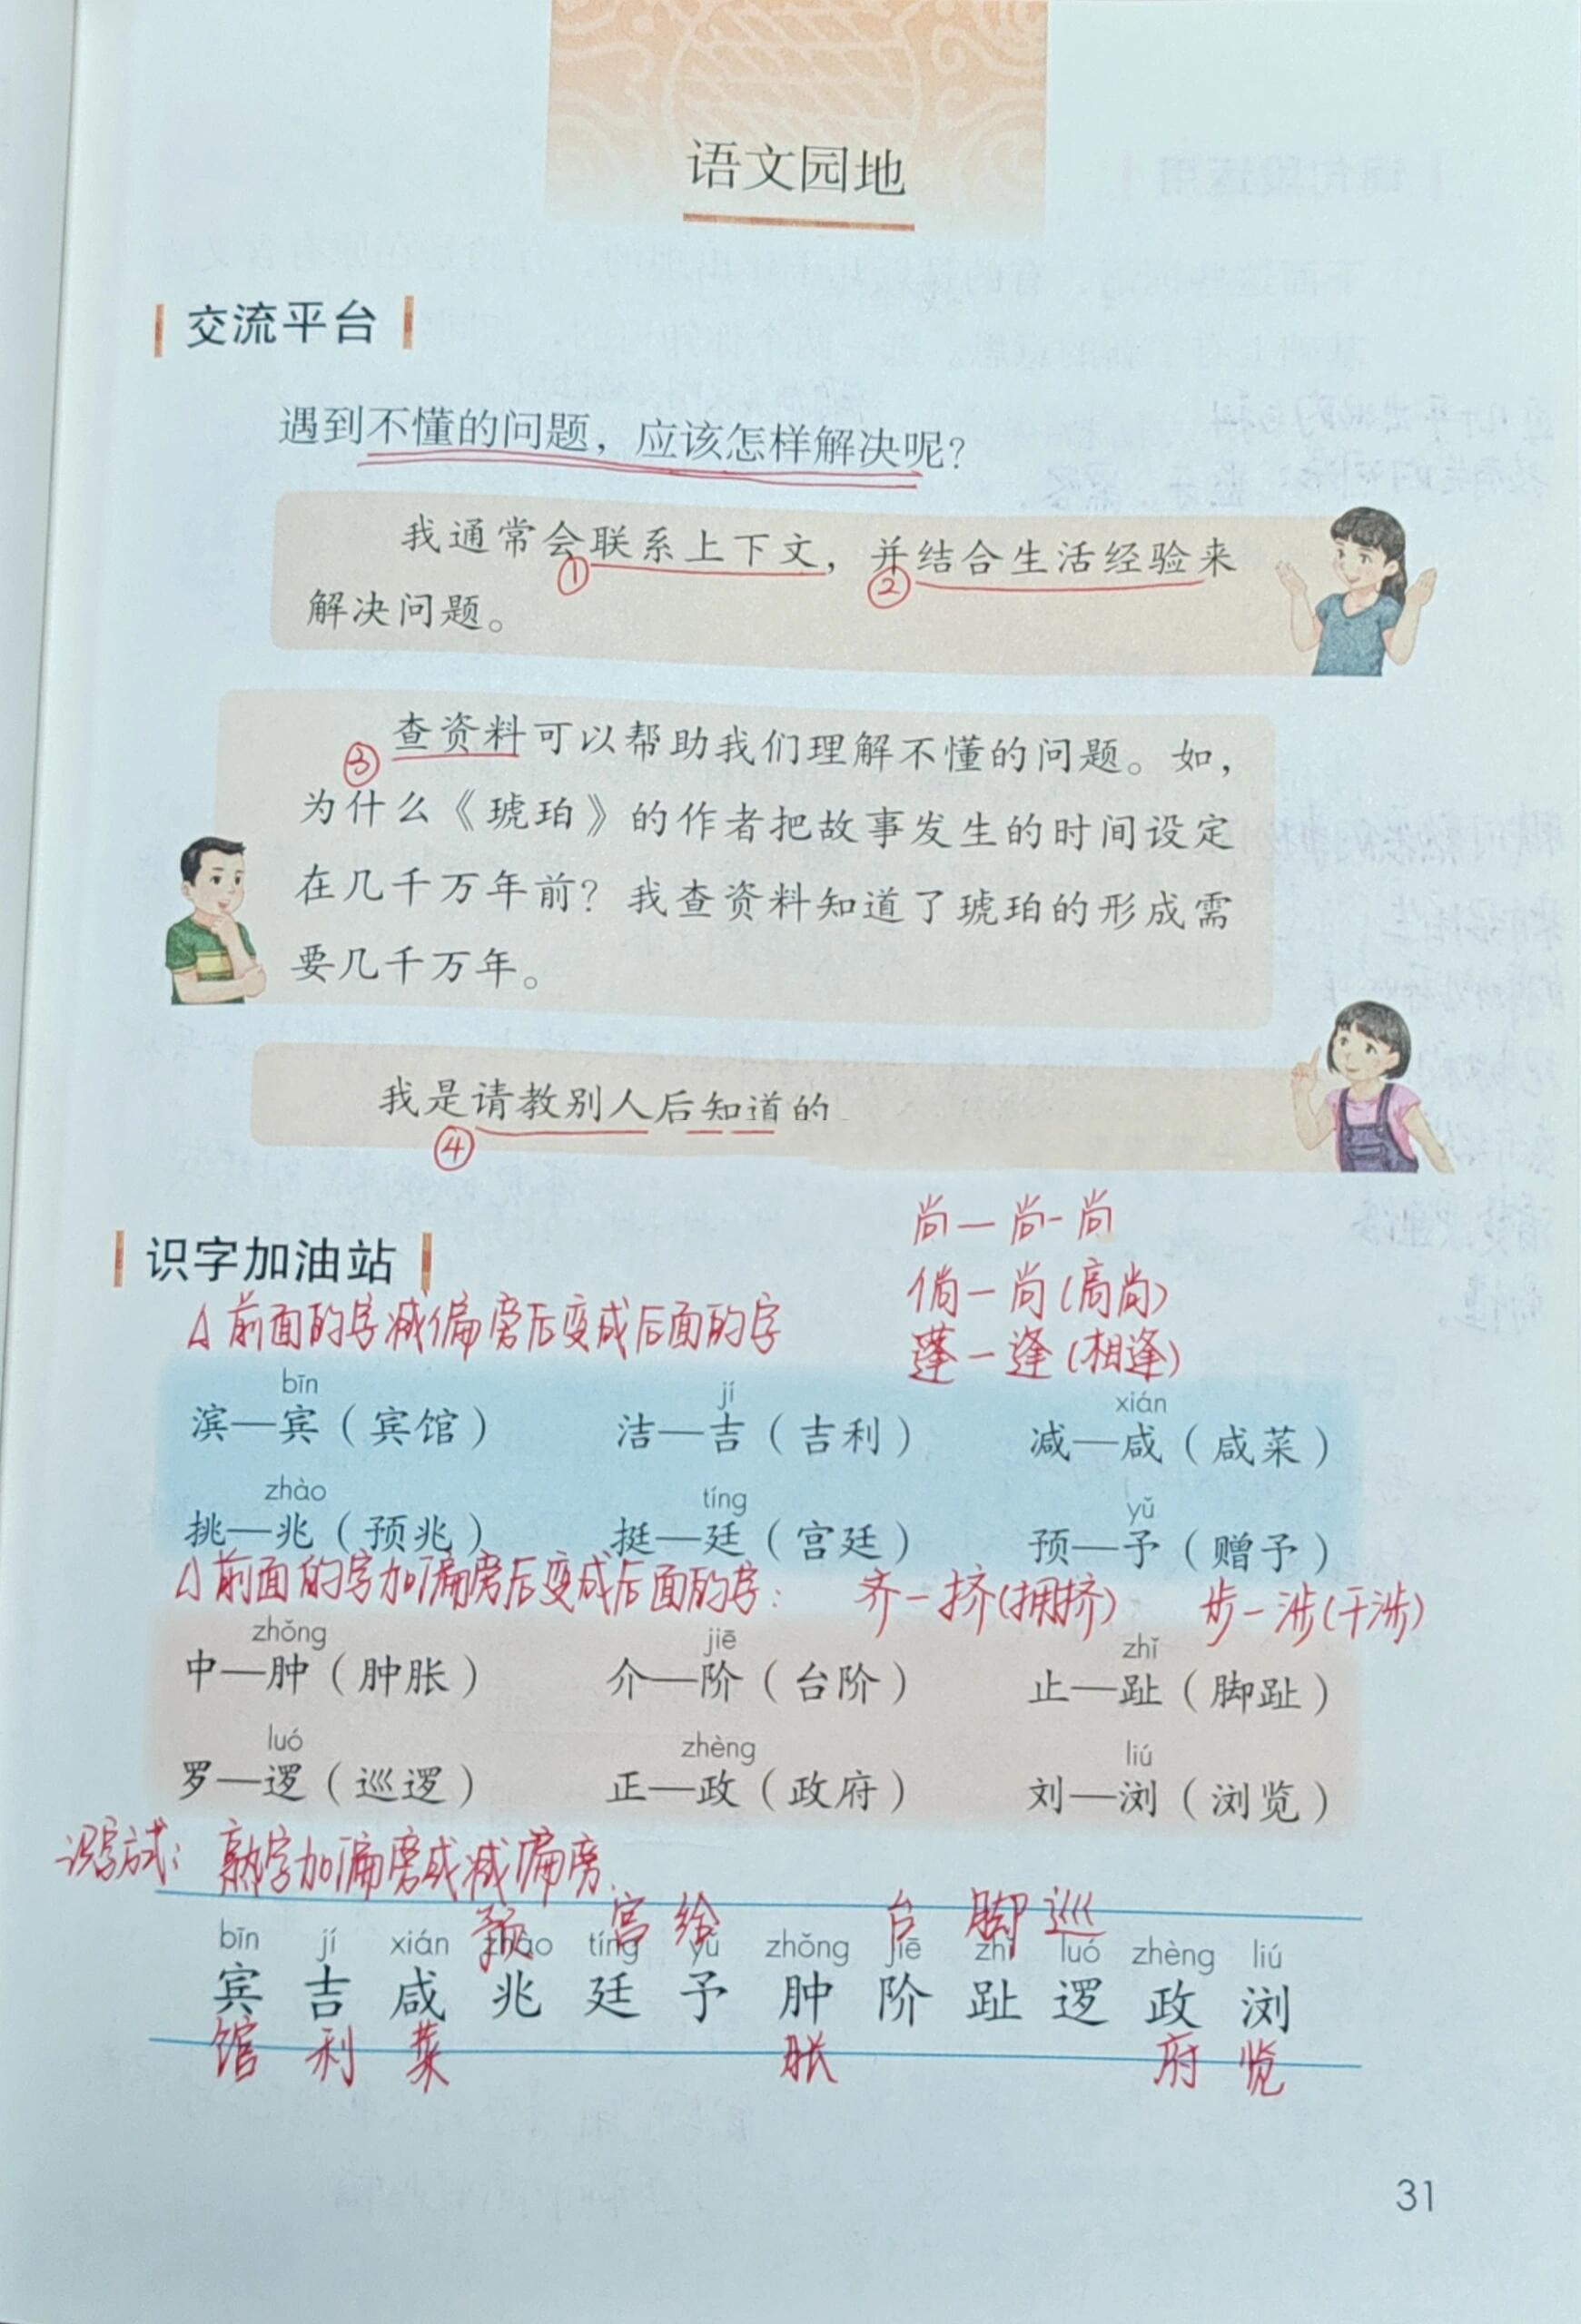 语文园地
交流平台
遇到不懂的问题，应该怎样解决呢？
我通常会联系上下文，并结合生活经验来
① ②
解决问题。
查资料可以帮助我们理解不懂的问题。如，
③
为什么《琥珀》的作者把故事发生的时间设定
在几千万年前？我查资料知道了琥珀的形成需
要几千万年。
我是请教别人后知道的
④
尚一尚-尚
识字加油站
倘一尚(高尚)
△前面的字减偏旁后变成后面的字
蓬一逢(相逢)
bīn jí xián
滨—宾（宾馆） 洁—吉（吉利） 减—咸（咸菜）
zhào tíng yǔ
挑—兆（预兆） 挺—廷（宫廷） 预—予（赠予）
△前面的字加偏旁后变成后面的字: 齐一挤(拥挤) 步一涉(干涉)
zhǒng jiē zhǐ
中—肿（肿胀） 介—阶（台阶） 止—趾（脚趾）
luó zhèng liú
罗—逻（巡逻） 正—政（政府） 刘—浏（浏览）
识字方式: 熟字加偏旁或减偏旁.
预 宫 给 台 脚 巡
bīn jí xián zhào tíng yǔ zhǒng jiē zhǐ luó zhèng liú
宾 吉 咸 兆 廷 予 肿 阶 趾 逻 政 浏
馆 利 菜 胀 府 览
31